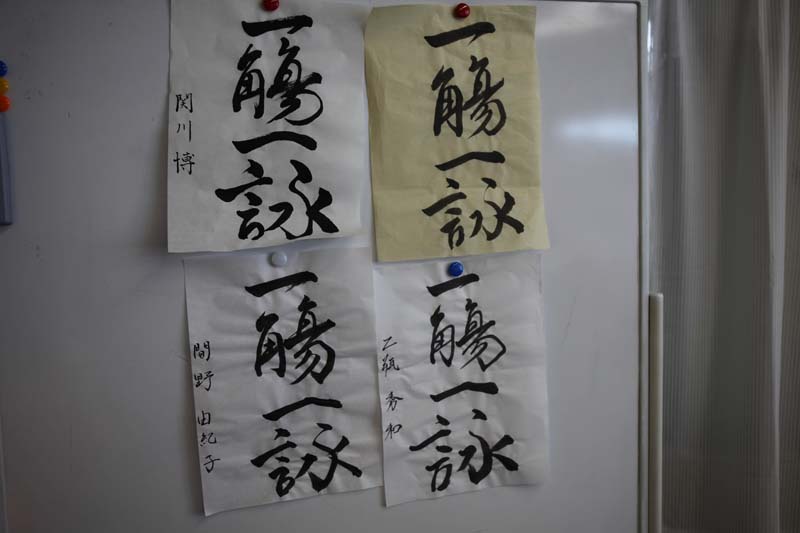 一觴一詠
関川博
一觴一詠
一觴一詠
間野 由紀子
一觴一詠
乙瓶 秀和